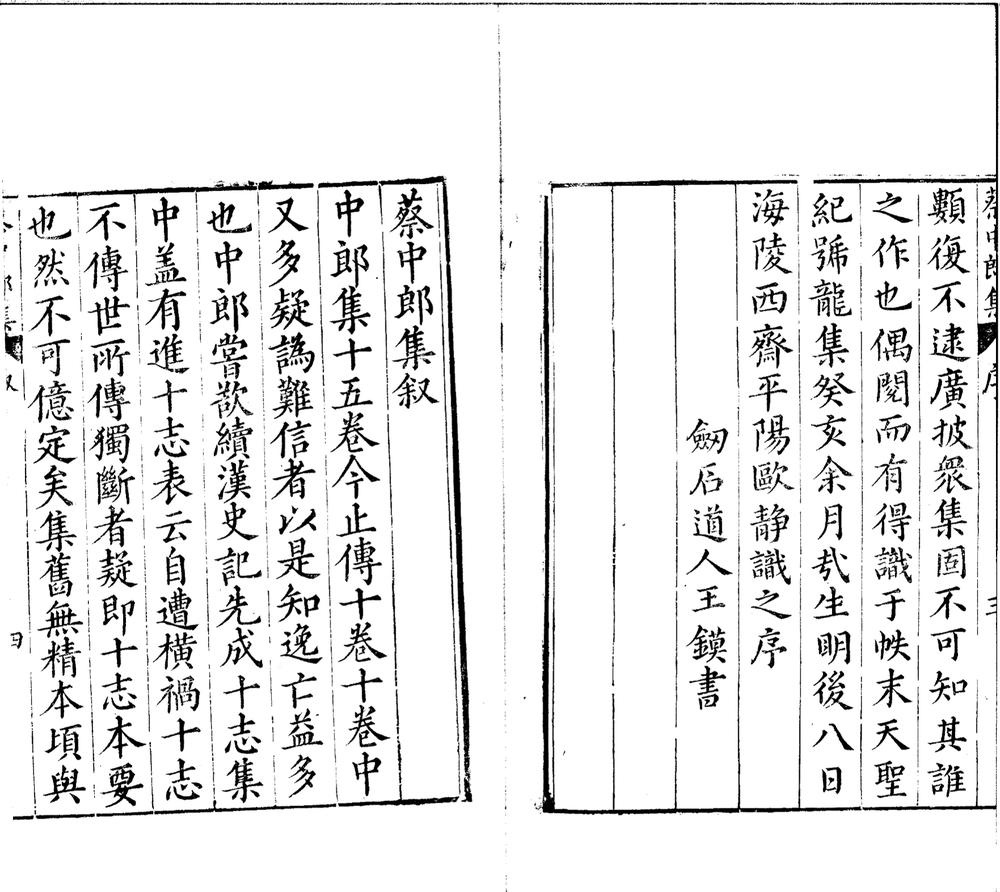 蔡中郎集 序 三
顥復不逮廣披衆集固不可知其誰
之作也偶閱而有得識于帙末天聖
紀號龍集癸亥余月哉生明後八日
海陵西齋平陽歐静識之序
劔石道人王鏌書
蔡中郎集叙
中郎集十五卷今止傳十卷十卷中
又多疑譌難信者以是知逸亡益多
也中郎嘗欲續漢史記先成十志集
中盖有進十志表云自遭橫禍十志
不傳世所傳獨斷者疑即十志本要
也然不可億定矣集舊無精本頃與
叙 四